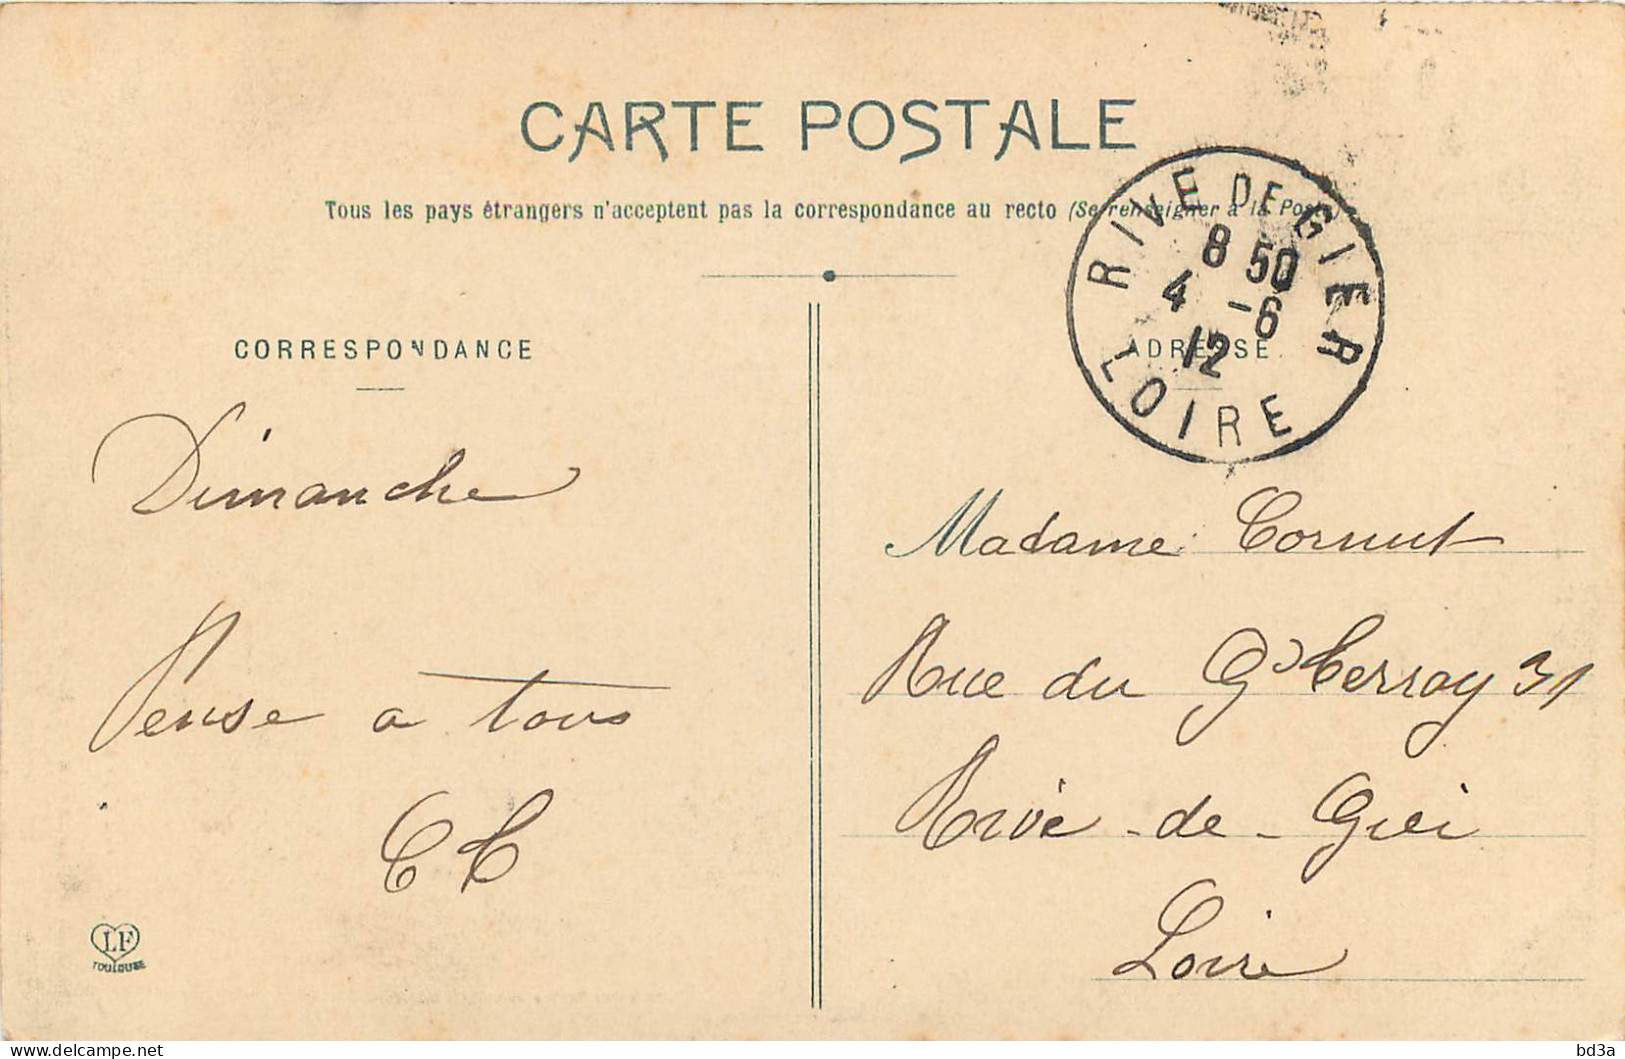 CARTE POSTALE
Tous les pays étrangers n'acceptent pas la correspondance au recto (Se renseigner à la Poste)
RIVE DE GIER
8 50
4 -6
12
LOIRE
CORRESPONDANCE
ADRESSE
Dimanche
Pense a tous
CC
Madame Cornut
Rue du 31
Rive-de-Gier
Loire
LF
TOULOUSE
bd3a